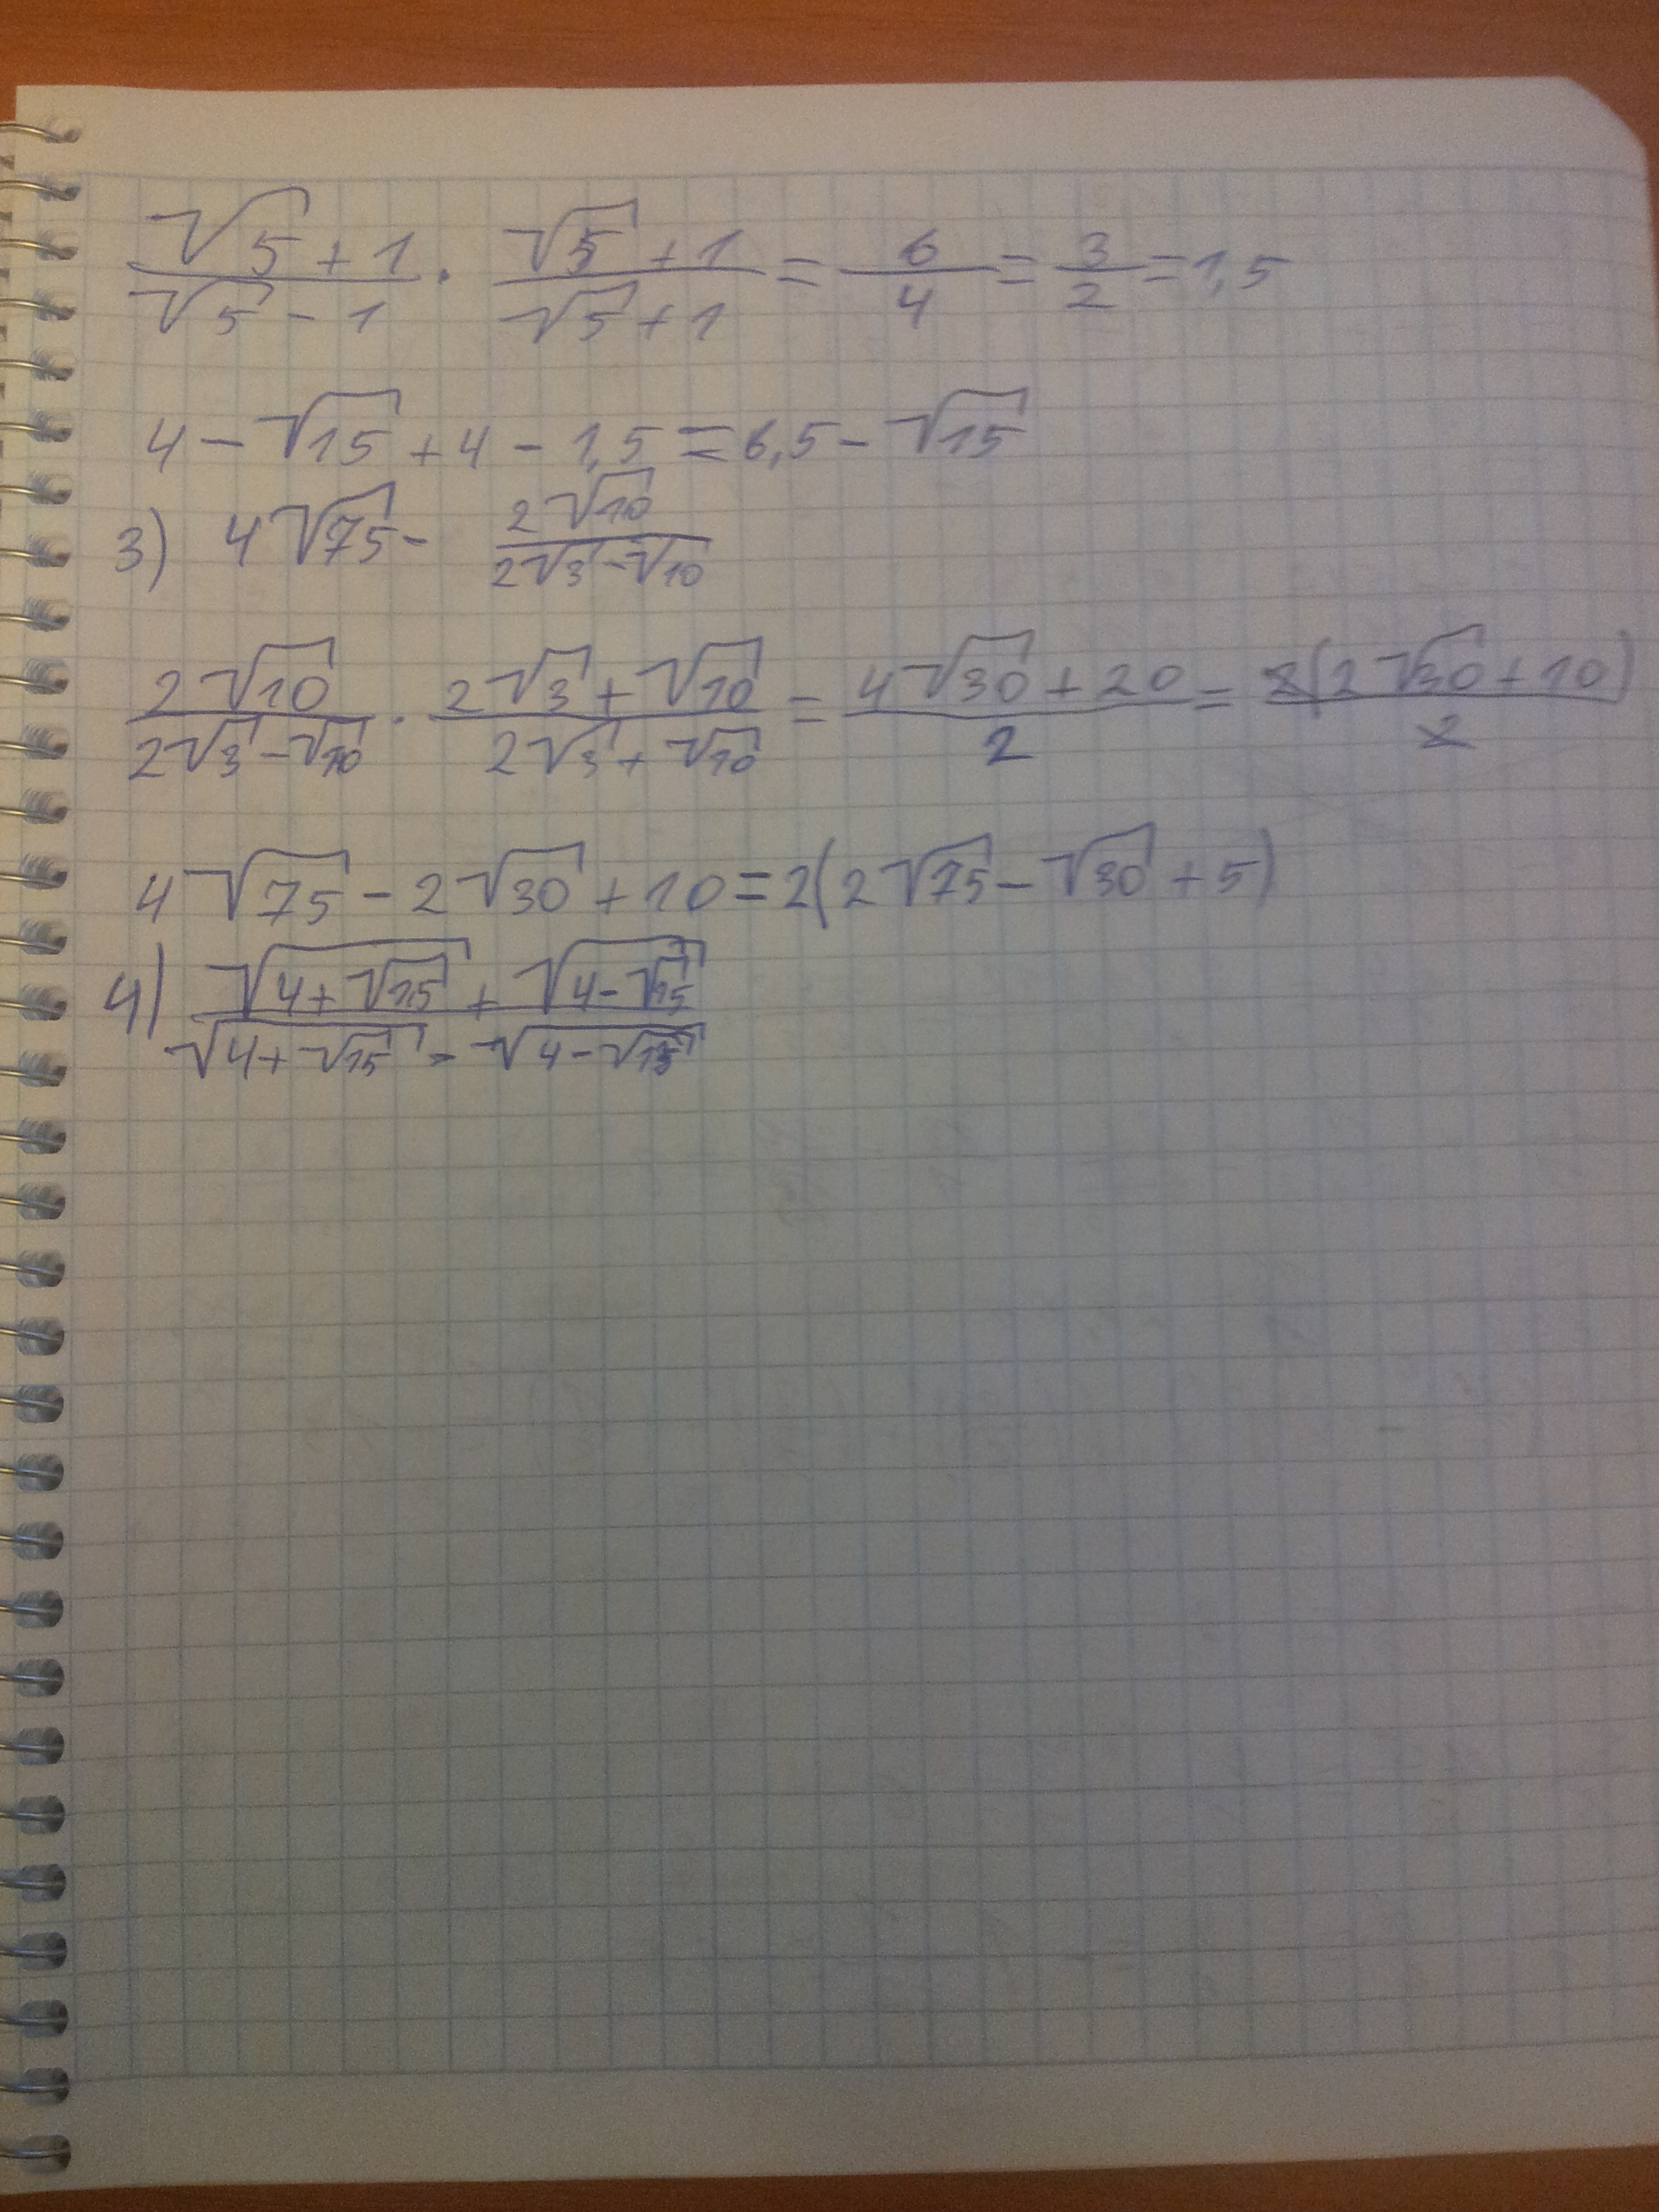 (√5 + 1)/(√5 - 1) · (√5 + 1)/(√5 + 1) = 6/4 = 3/2 = 1,5
4 - √15 + 4 - 1,5 = 6,5 - √15
3) 4√75 - (2√10)/(2√3 - √10)
(2√10)/(2√3 - √10) · (2√3 + √10)/(2√3 + √10) = (4√30 + 20)/2 = 2(2√30 + 10)/2
4√75 - 2√30 + 10 = 2(2√75 - √30 + 5)
4) (√(4 + √15) + √(4 - √15))/(√(4 + √15) - √(4 - √15))